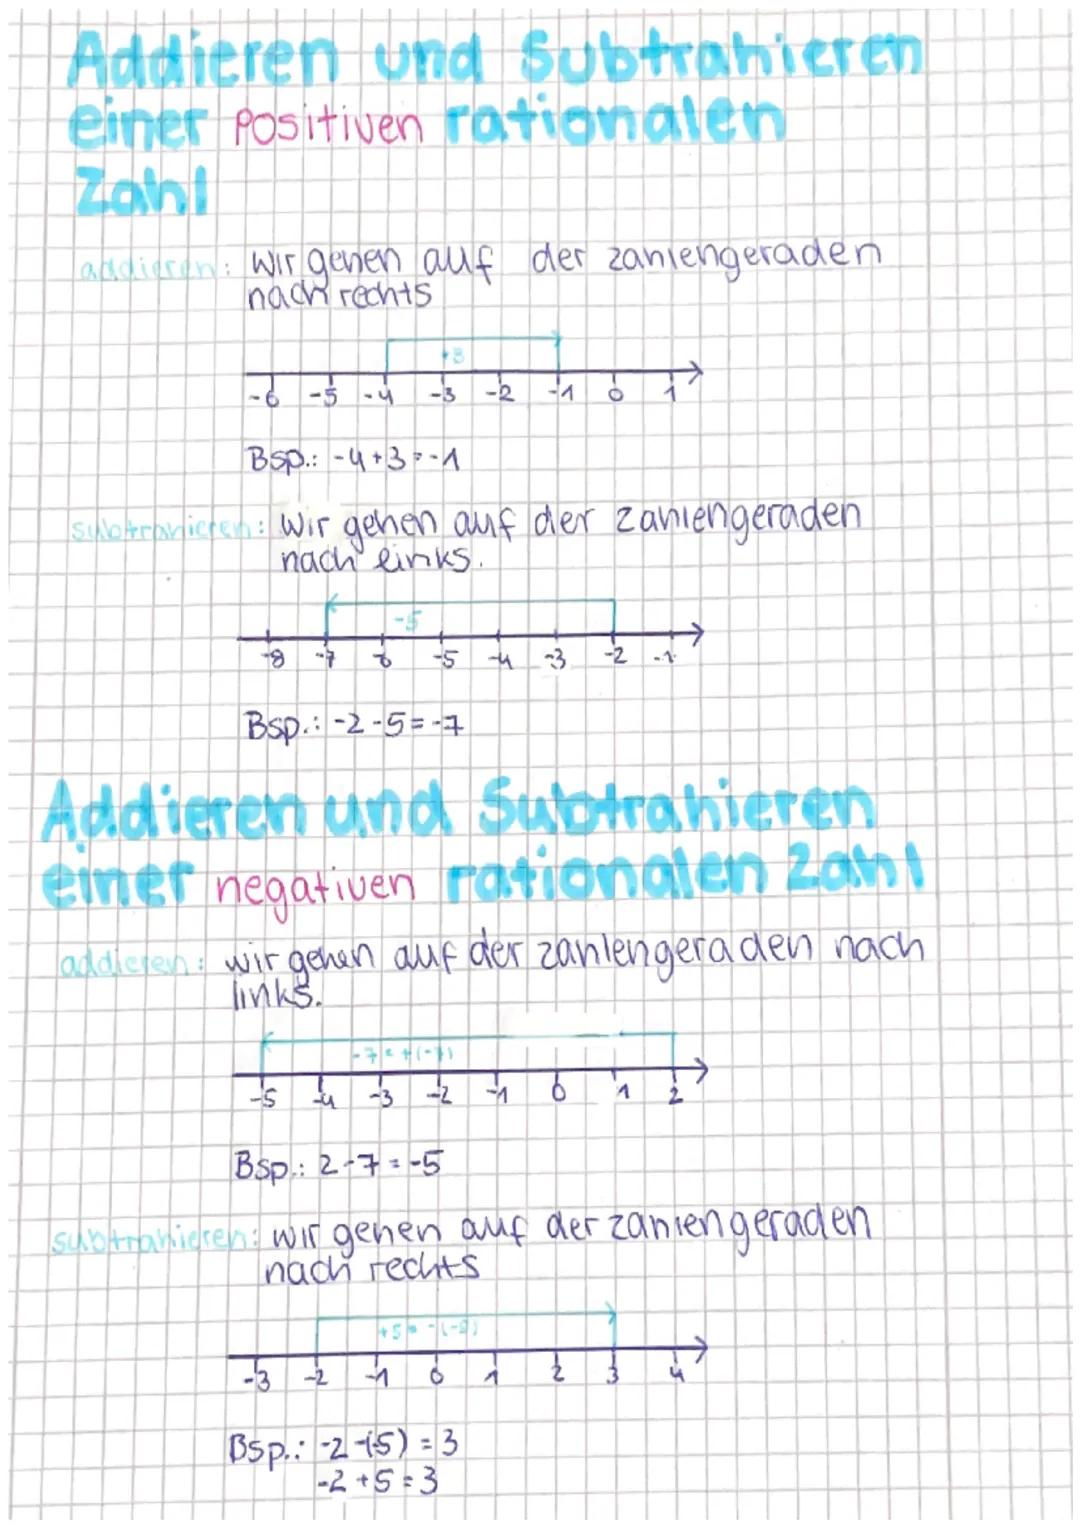 Addieren und Subtrahieren
einer positiven rationalen
Zahl
addieren: wir gehen auf der zahlengeraden
nach rechts
+3
-6 -5 -4 -3 -2 -1 0 1
Bsp.: -4+3=-1
subtrahieren: wir gehen auf der zahlengeraden
nach links.
-5
-8 -7 -6 -5 -4 -3 -2 -1
Bsp.: -2-5=-7
Addieren und Subtrahieren
einer negativen rationalen Zahl
addieren: wir gehen auf der zahlengeraden nach
links.
-7=+(-7)
-5 -4 -3 -2 -1 0 1 2
Bsp.: 2-7=-5
subtrahieren: wir gehen auf der zahlengeraden
nach rechts
+5=-(-5)
-3 -2 -1 0 1 2 3 4
Bsp.: -2-(-5)=3
-2+5=3